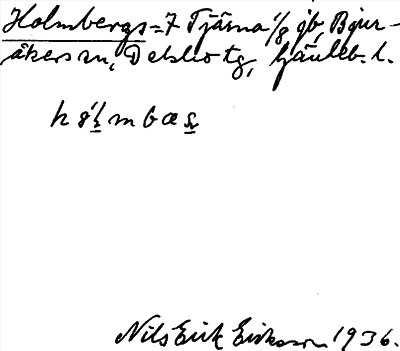 Holmbergs = 7 Tjärna 1/8 gb, Bjur-
åkers sn, Delsbo tg, Gävleb. l.
hólmbæs
Nils Erik Eriksson 1936.